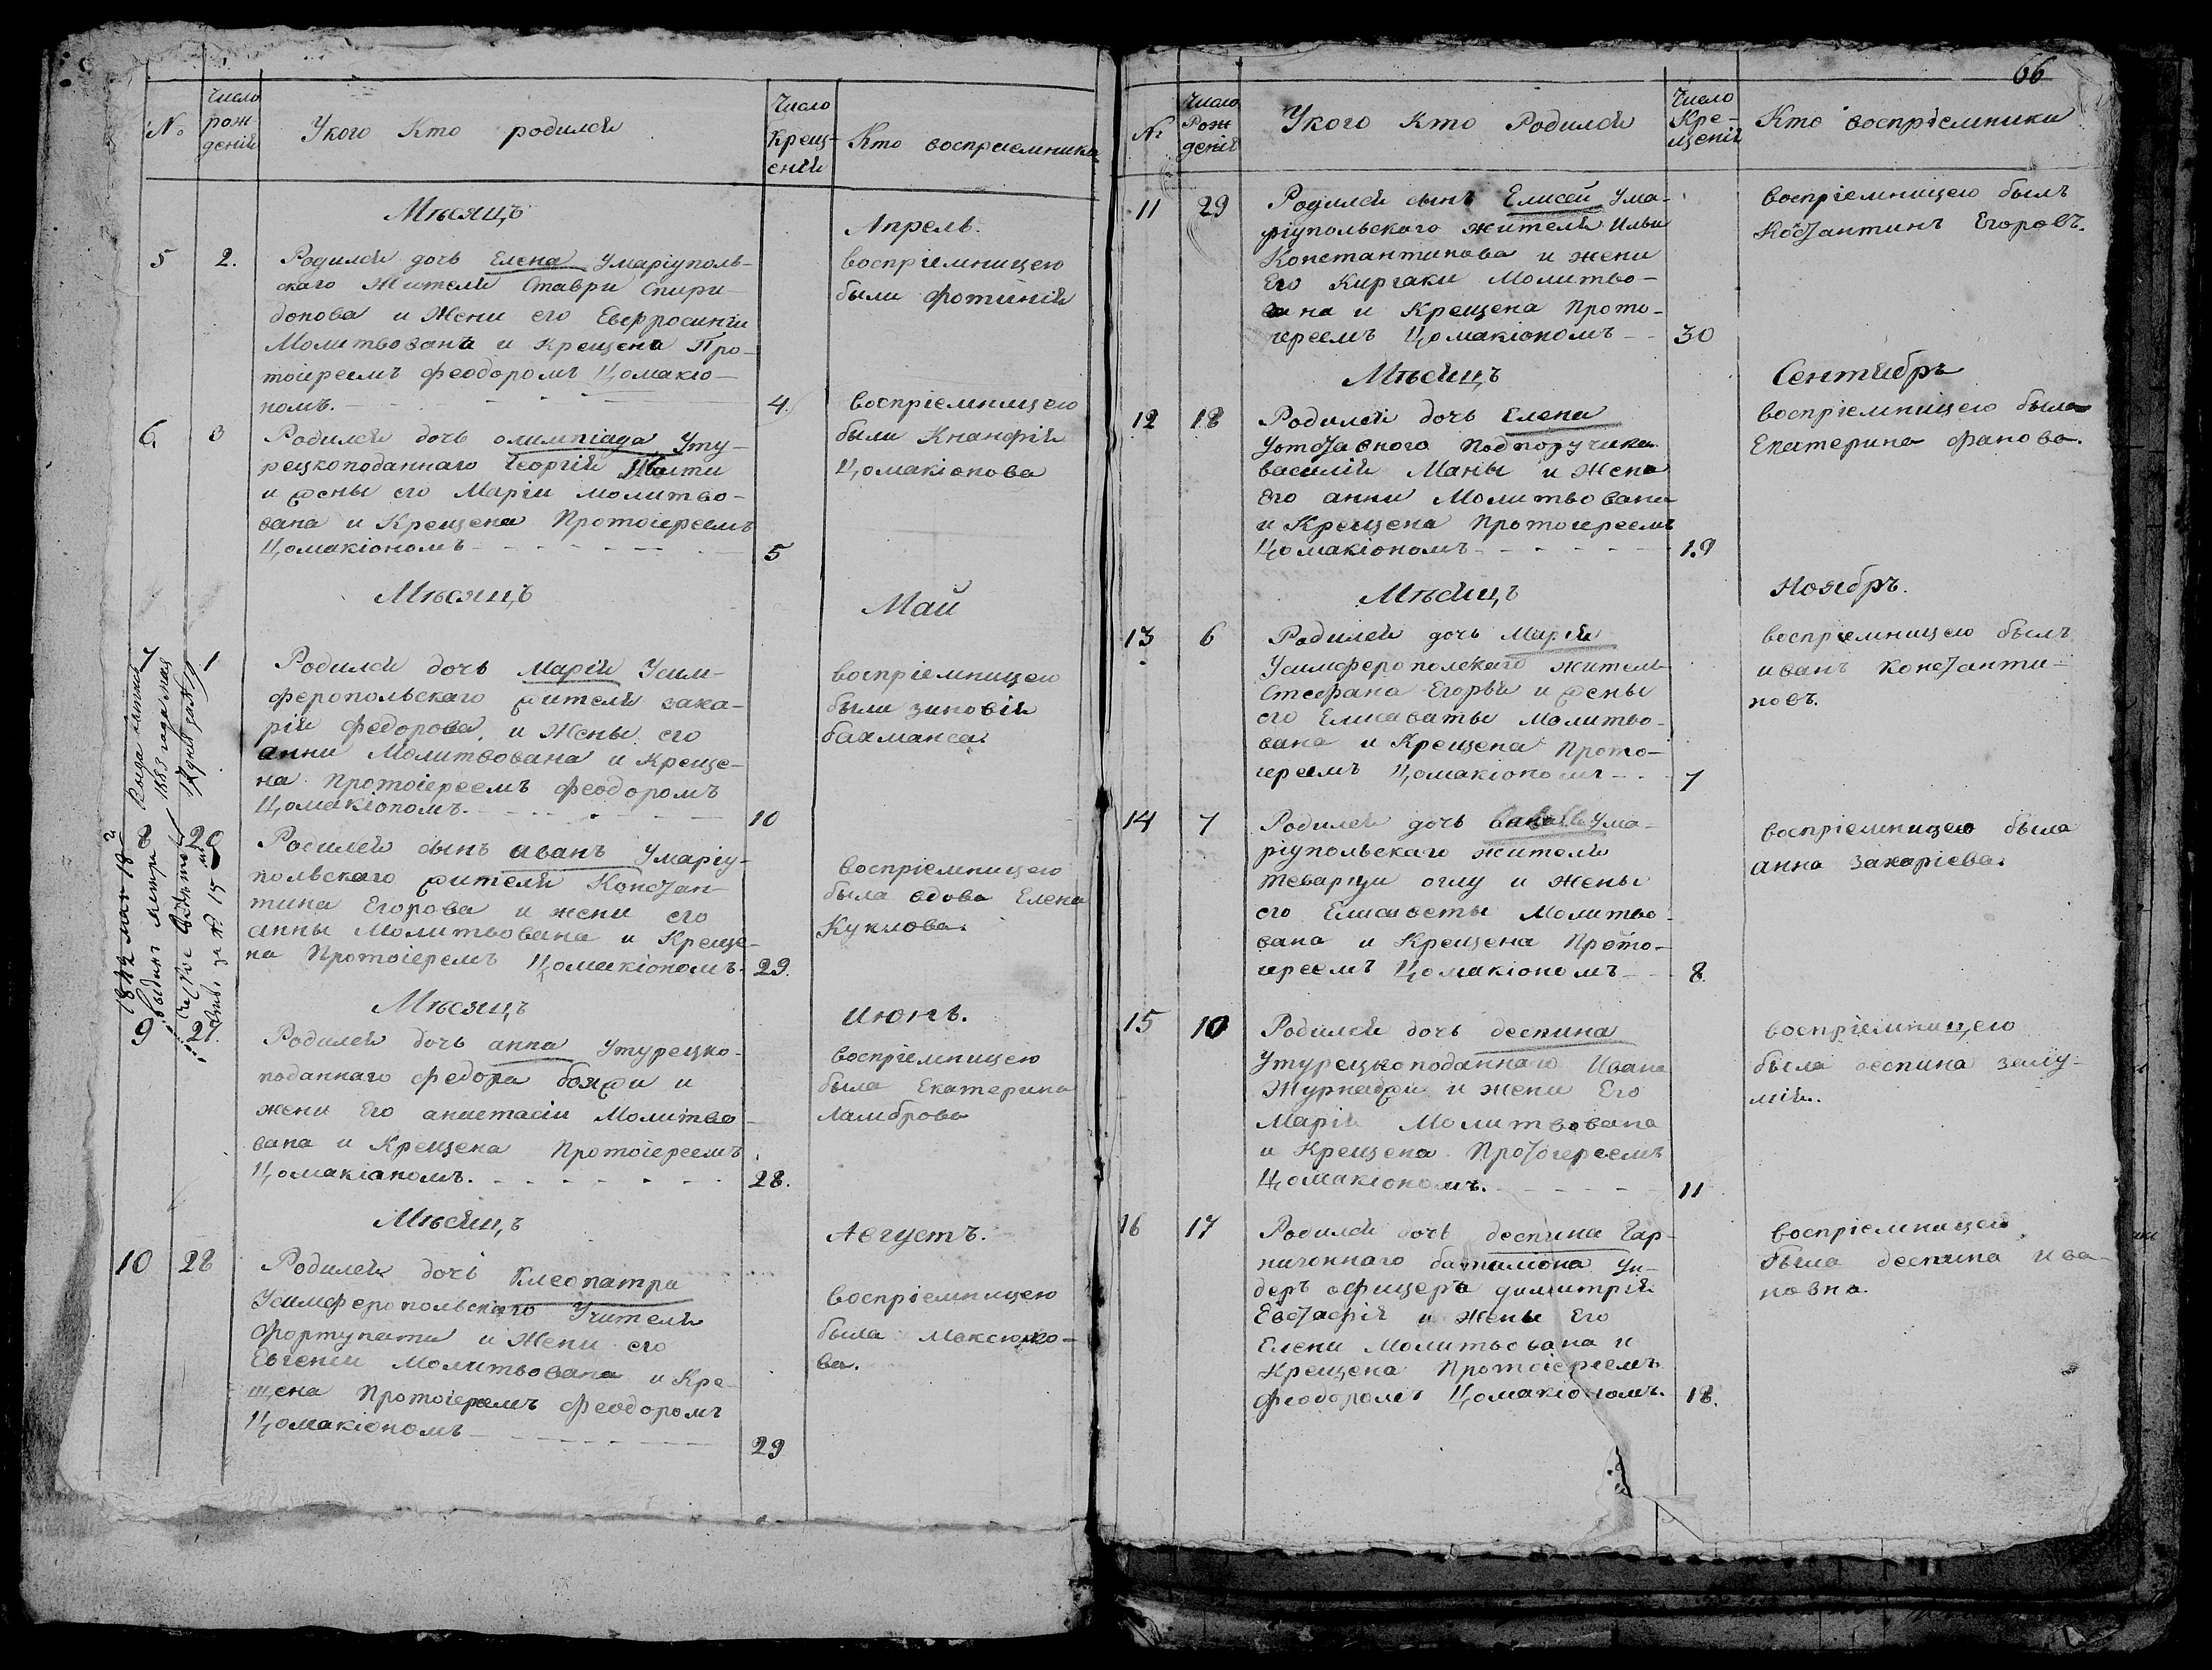 №
Число
рож
деній
Укого Кто родился
Число
Крещ-
еній
Кто восприемники
Мѣсяцъ
Апрель.
5
2.
Родилей дочь Елена Умаріуполь-
скаго Жителя Ставри Спири-
донова и Жени его Евфросиніи
Молитвована и Крещена Про-
тоіреемъ Феодоромъ Цомакіо-
номъ.
4.
воспріемницею
были Фотиній
6.
3
Родилей дочь олимпіада Уту-
рецкоподаннаго Георгій
и жены его Маріи молитво-
вана и Крещена Протоіереемъ
Цомакіономъ
5
воспріемницею
были Кнанфій
Цомакіонова
Мѣсяцъ
Май
7
1
Родилей дочь Марій Усим-
феропольскаго жителя заха-
рій Федорова, и Жены его
анни Молитвована и Креще-
на Протоіереемъ Феодоромъ
Цомакіономъ.
10
воспріемницею
были зиновій
бахманса.
8
20
Родилей сынъ иванъ Умаріу-
польскаго жителя Констан-
тина Егорова и жени его
анны Молитвована и Креще-
на Протоіеремъ Цомакіономъ.
29.
воспріемницею
была вдова Елена
Куклова.
Мѣсяцъ
июнь.
9
27.
Родилей дочь анна Утурецко-
поданнаго Федора бояжи и
жени Его анастасіи Молитво-
вана и Крещена Протоіереемъ
Цомакіаномъ.
28.
воспріемницею
была Екатерина
Ламброва
Мѣсяцъ
Августъ.
10
28
Родилей дочі Клеопатра
Усимферопольскаго Учителя
Фортунати и Жени его
Евгеніи Молитвована и Кре-
щена Протоіереемъ Феодоромъ
Цомакіономъ
29
воспріемницею
была Максимо-
ва.
1883 года мая
66
№
Число
Рож
деній
Укого Кто Родился
Число
Кре-
щеній
Кто воспріемники
11
29
Родилей сынъ Елисей Ума-
ріупольскаго жителя Ильи
Константинова и жени
Его Киргаки Молитво-
вана и Крещена Прото-
іереемъ Цомакіономъ
30
воспріемницею былъ
Костантинъ Егоровъ.
Мѣсяцъ
Сентябрь
12
18
Родилей дочь Елена
Уотставного Подпоручика
василій Маны и Жена
Его анни Молитвована
и Крещена Протоіереемъ
Цомакіономъ
19
воспріемницею была
Екатерина Фанова.
Мѣсяцъ
Ноябрь.
13
6
Родилей дочь Марій
Усимферополскаго жителя
Стефана Егорви и жены
его Елисаваты Молитво-
вана и Крещена Прото-
іереемъ Цомакіономъ
7
воспріемницею былъ
иванъ константи-
новъ.
14
7
Родилей дочь Ума-
ріупольскаго жителя
Теварци оглу и Жены
его Елисаветы Молитво-
вана и Крещена Прото-
іереемъ Цомакіономъ
8.
воспріемницею была
анна Захаріева.
15
10
Родилей дочь деспина
Утурецкоподаннаго Ивана
Журнаджи и жени Его
Марій Молитвована
и Крещена Протоіереемъ
Цомакіономъ.
11
воспріемницею
была деспина зелу-
мій.
16
17
Родилей дочь деспина Гар-
низоннаго баталіона Ун-
деръ офицера димитрій
Евстафій и Жены Его
Елени Молитвована и
Крещена Протоіереемъ
Феодоромъ Цомакіономъ.
18.
воспріемницею
была деспина Ива-
новна.